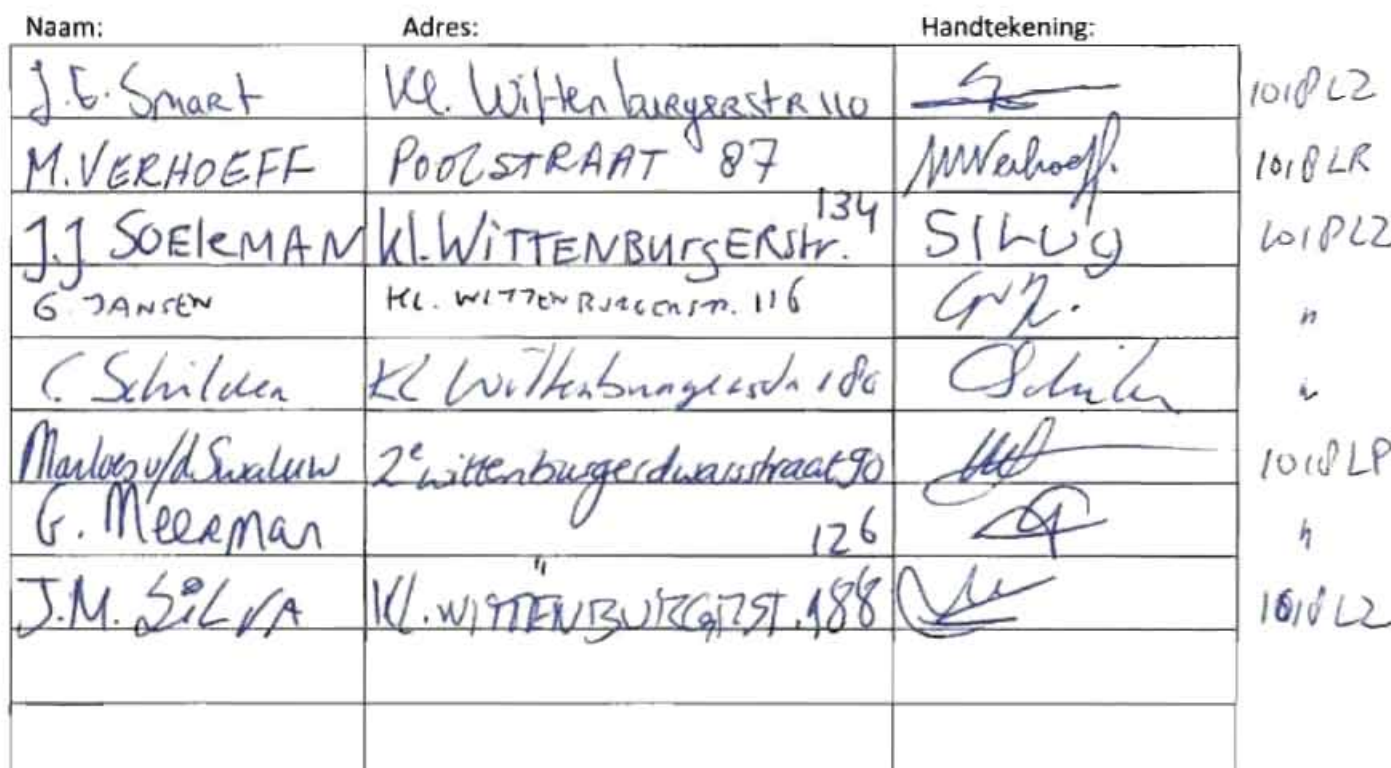 Naam: Adres: Handtekening:
J.E. Smart Kl. WittenburgerstR 110 1018 LZ
M. VERHOEFF POOLSTRAAT 87 MVerhoeff. 1018 LR
J.J SOEKMAN Kl. WiTTENBURgERStr. 134 1018 LZ
G. JANSEN KL. WITTENBURGERSTR. 116 "
C. Schilder KL Wittenburgerstr 180 Schilder "
Marloes v/d. Swaluw 2e wittenburgerdwarsstraat 90 1018 LP
G. MeeRMan 126 "
J.M. SiLVA Kl. WITTENBURGRST. 188 1018 LZ